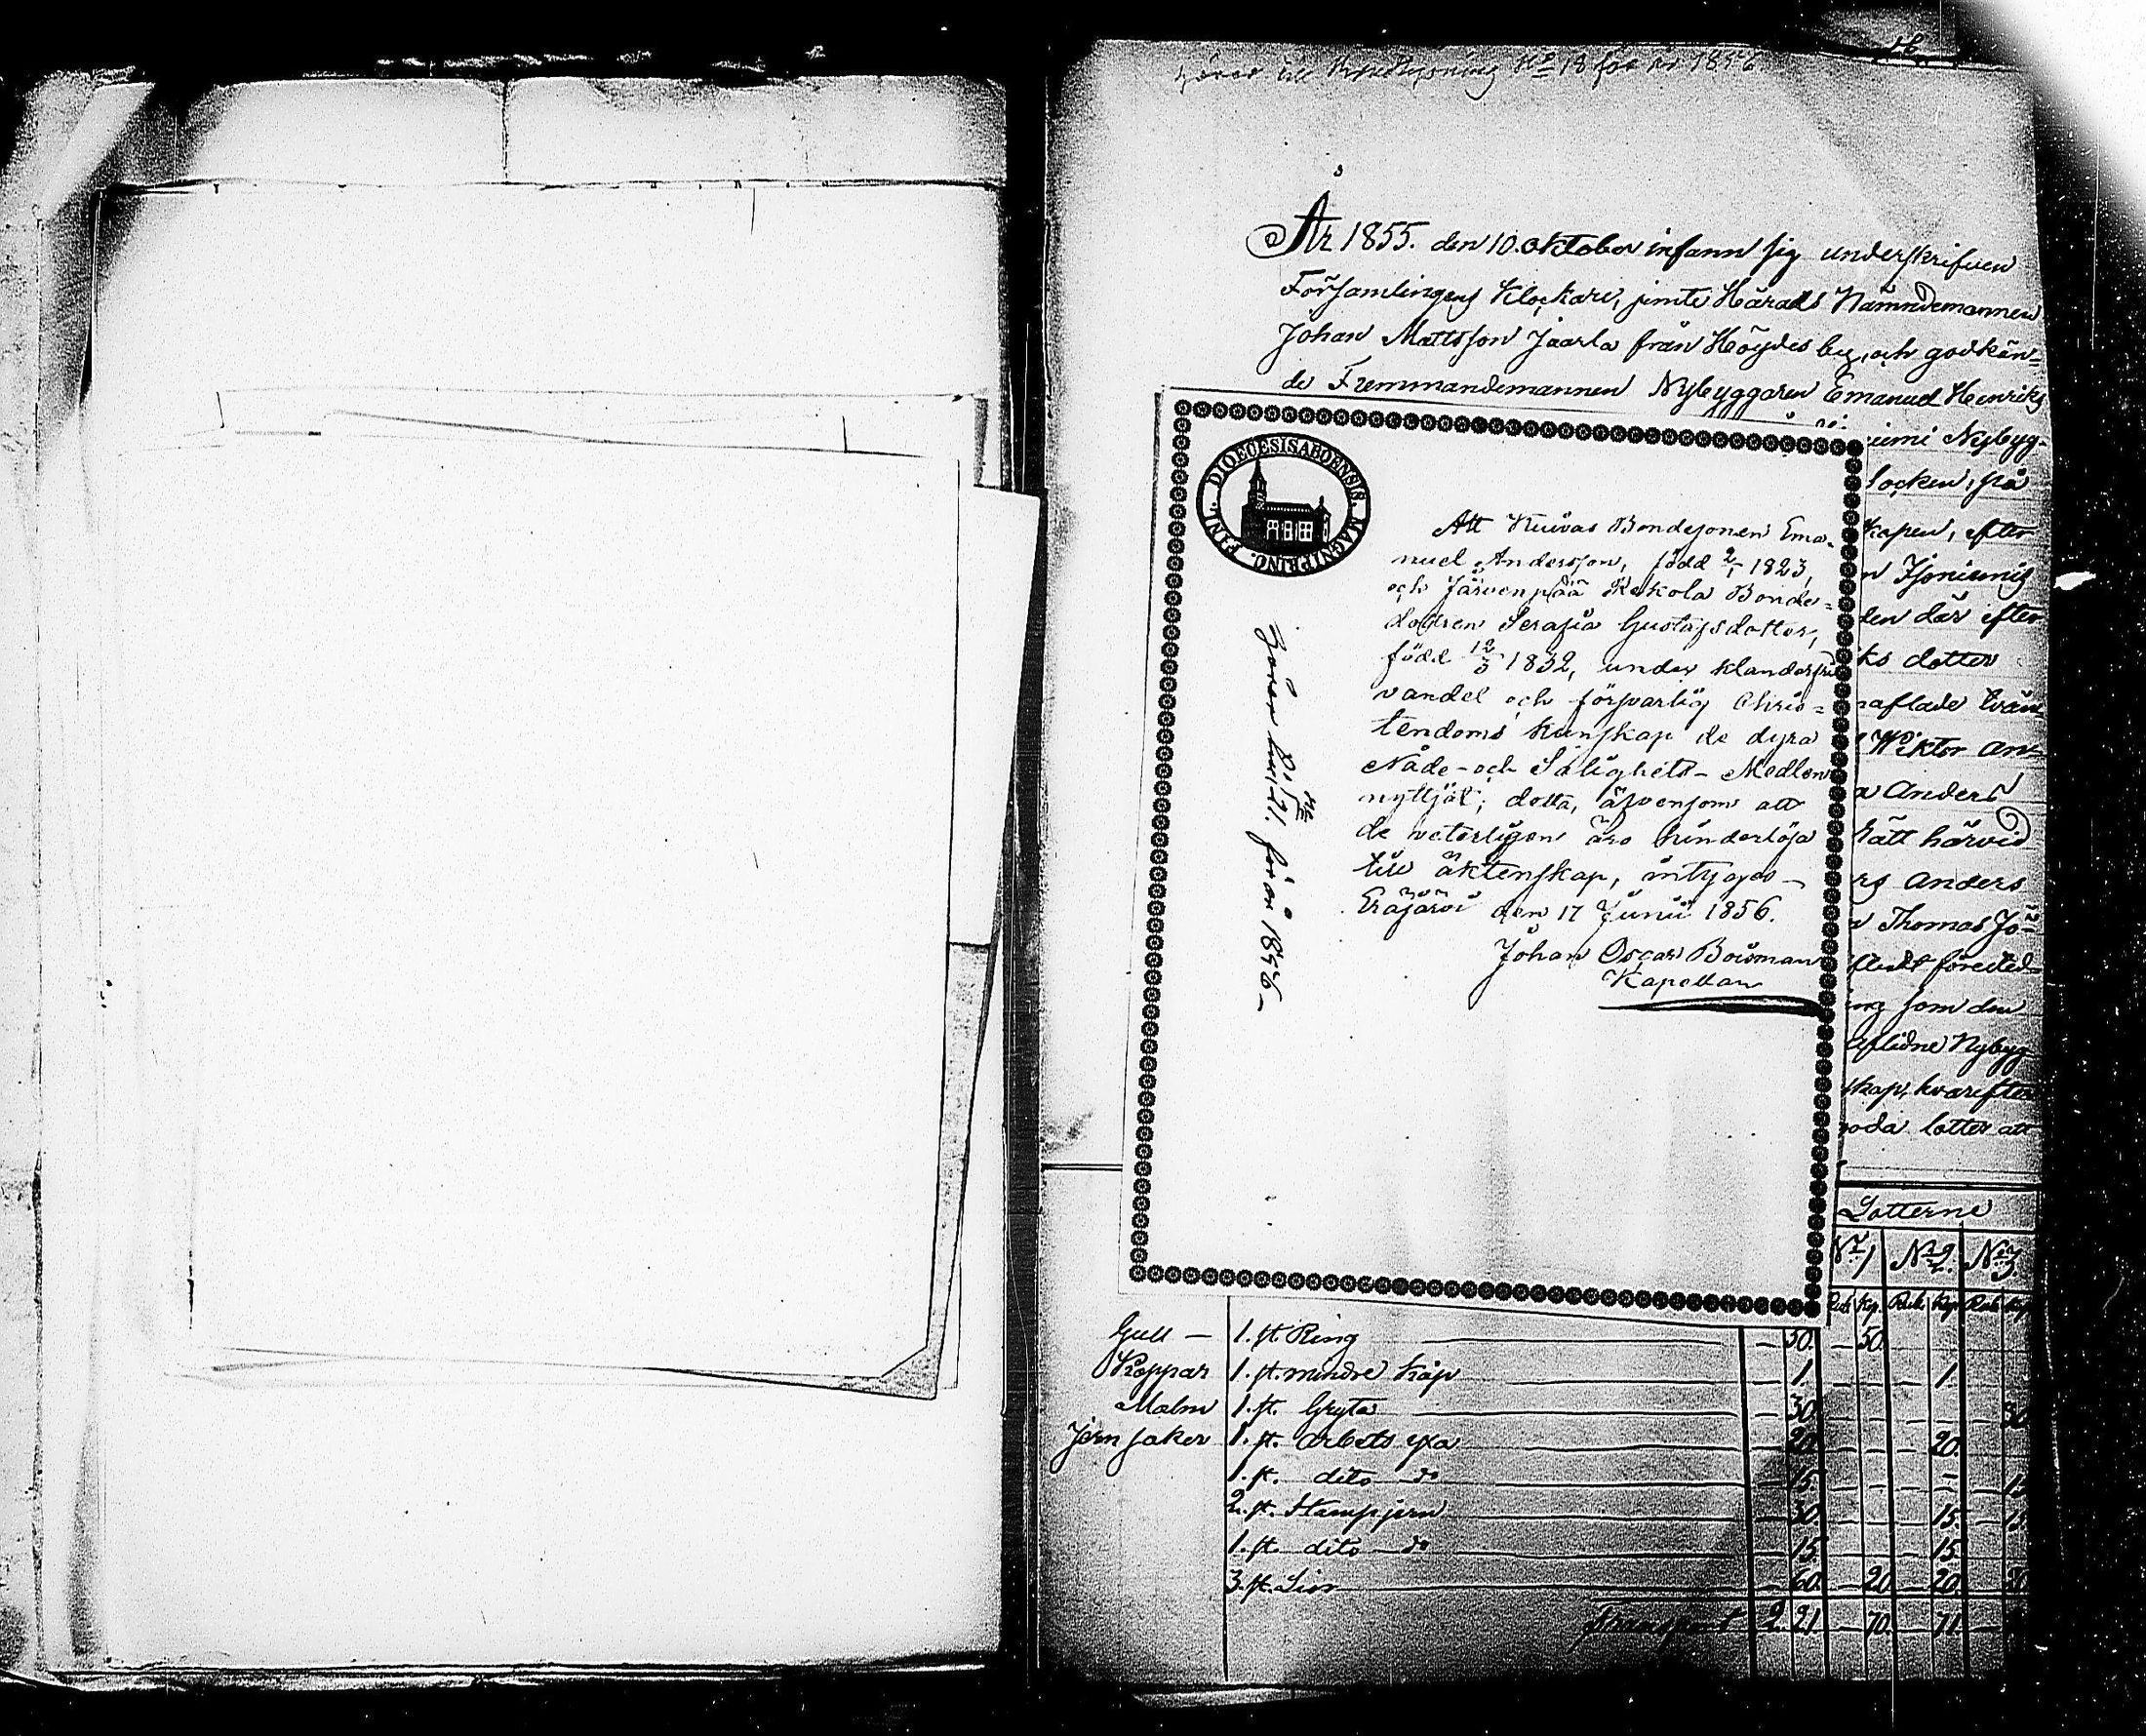 hörer till vigsellysning No 18 för år 1856.
År 1855. den 10. oktober infann sig underskrifven
Församlingens Klockare, jemte Härads Nämndemannen
Johan Mattsson Jaarla från Höydes by, och godkän-
de Fremmandemannen Nybyggaren Emanuel Henriks
niemi Nybyg-
locken, på
skapen, efter
n Isoniemis
den där efter
ks dotter
naflade
Wiktor an-
a Anders
rätt härvid
rs Anders
n Thomas Jo-
som den
aflidne Nybyg-
skap, hvarefter
goda lotter att
DIOECESIS ABOENSIS. MAGNI PRINC. FINL.
Att Kuivas Bondesonen Ema-
nuel Andersson, född 2/1 1823,
och Järvenpää Kekola Bonde-
dottren Serafia Gustafsdotter,
född 12/3 1832, under klanderfri
vandel och försvarlig Chris-
tendoms kunskap de dyra
Nåde- och Salighets-Medlen
nyttjat; detta, äfvensom att
de veterligen äro hinderlösa
till äktenskap, intygas _
Eräjärvi den 17 Junii 1856.
Johan Oscar Boisman
Kapellan
hörer till No 21. för år 1856_
Lotterne
No 1 No 2. No 3
Rub Kp. Rub Kp. Rub Kp
Gull — 1. st. Ring — 50. — 50.
Koppar 1. st. mindre — 1. — 1.
Malm 1. st. Gryta — 30. — 30
Jern saker 1. st. arbets yxa — 20. — 20.
1. st. dito do — 15. — 15
2. st. Stampjern — 30. — 15. — 15
1. st. dito do — 15. — 15.
3. st. Liar — 60. — 20 — 20. — 20
Transport 2. 21. — 70. — 71.